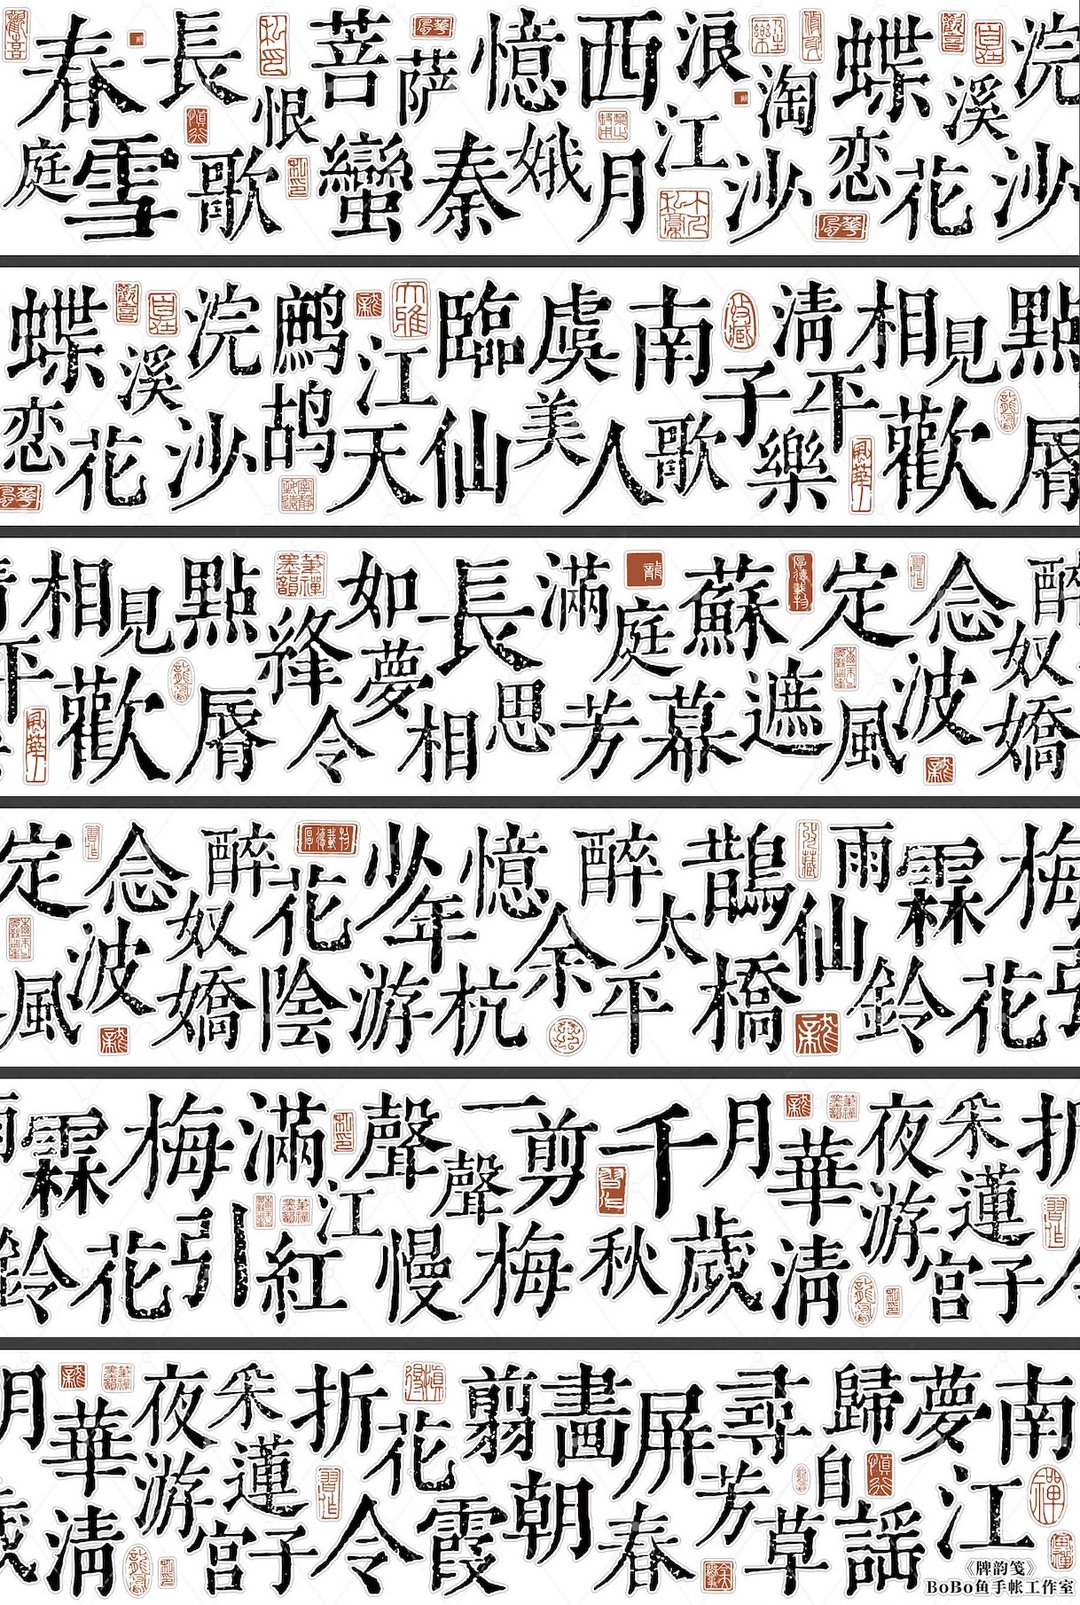 春庭雪
長恨歌
菩萨蠻
憶秦娥
西江月
浪淘沙
蝶恋花
浣溪沙
蝶恋花
浣溪沙
鹧鸪天
臨江仙
虞美人
南歌子
清平樂
相見歡
點脣
相見歡
點絳脣
如夢令
長相思
滿庭芳
蘇幕遮
定風波
念奴嬌
醉
定風波
念奴嬌
醉花陰
少年游
憶余杭
醉太平
鵲橋仙
雨霖鈴
梅花引
霖鈴
梅花引
滿江紅
聲聲慢
一剪梅
千秋歲
月華清
夜游宮
采蓮子
折
月華清
夜游宮
采蓮子
折花令
翦朝霞
畫屏春
尋芳草
歸自謠
夢江南
《牌韵笺》
BoBo鱼手帐工作室